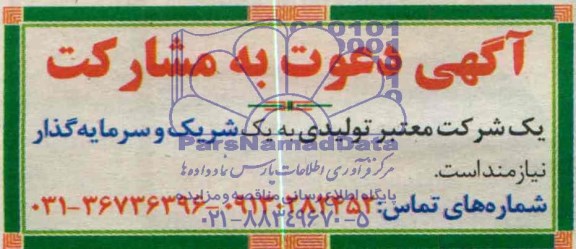 آگهی دعوت به مشارکت
یک شرکت معتبر تولیدی به یک شریک و سرمایه گذار
نیازمند است.
شماره‌های تماس: ۰۹۱۳۰۲۸۲۴۵۲-۰۳۱-۳۶۷۳۶۳۹۶
ParsNamadData
مرکز فرآوری اطلاعات پارس نماد داده ها
پایگاه اطلاع رسانی مناقصه و مزایده
۰۲۱-۸۸۳۴۹۶۷۰-۵